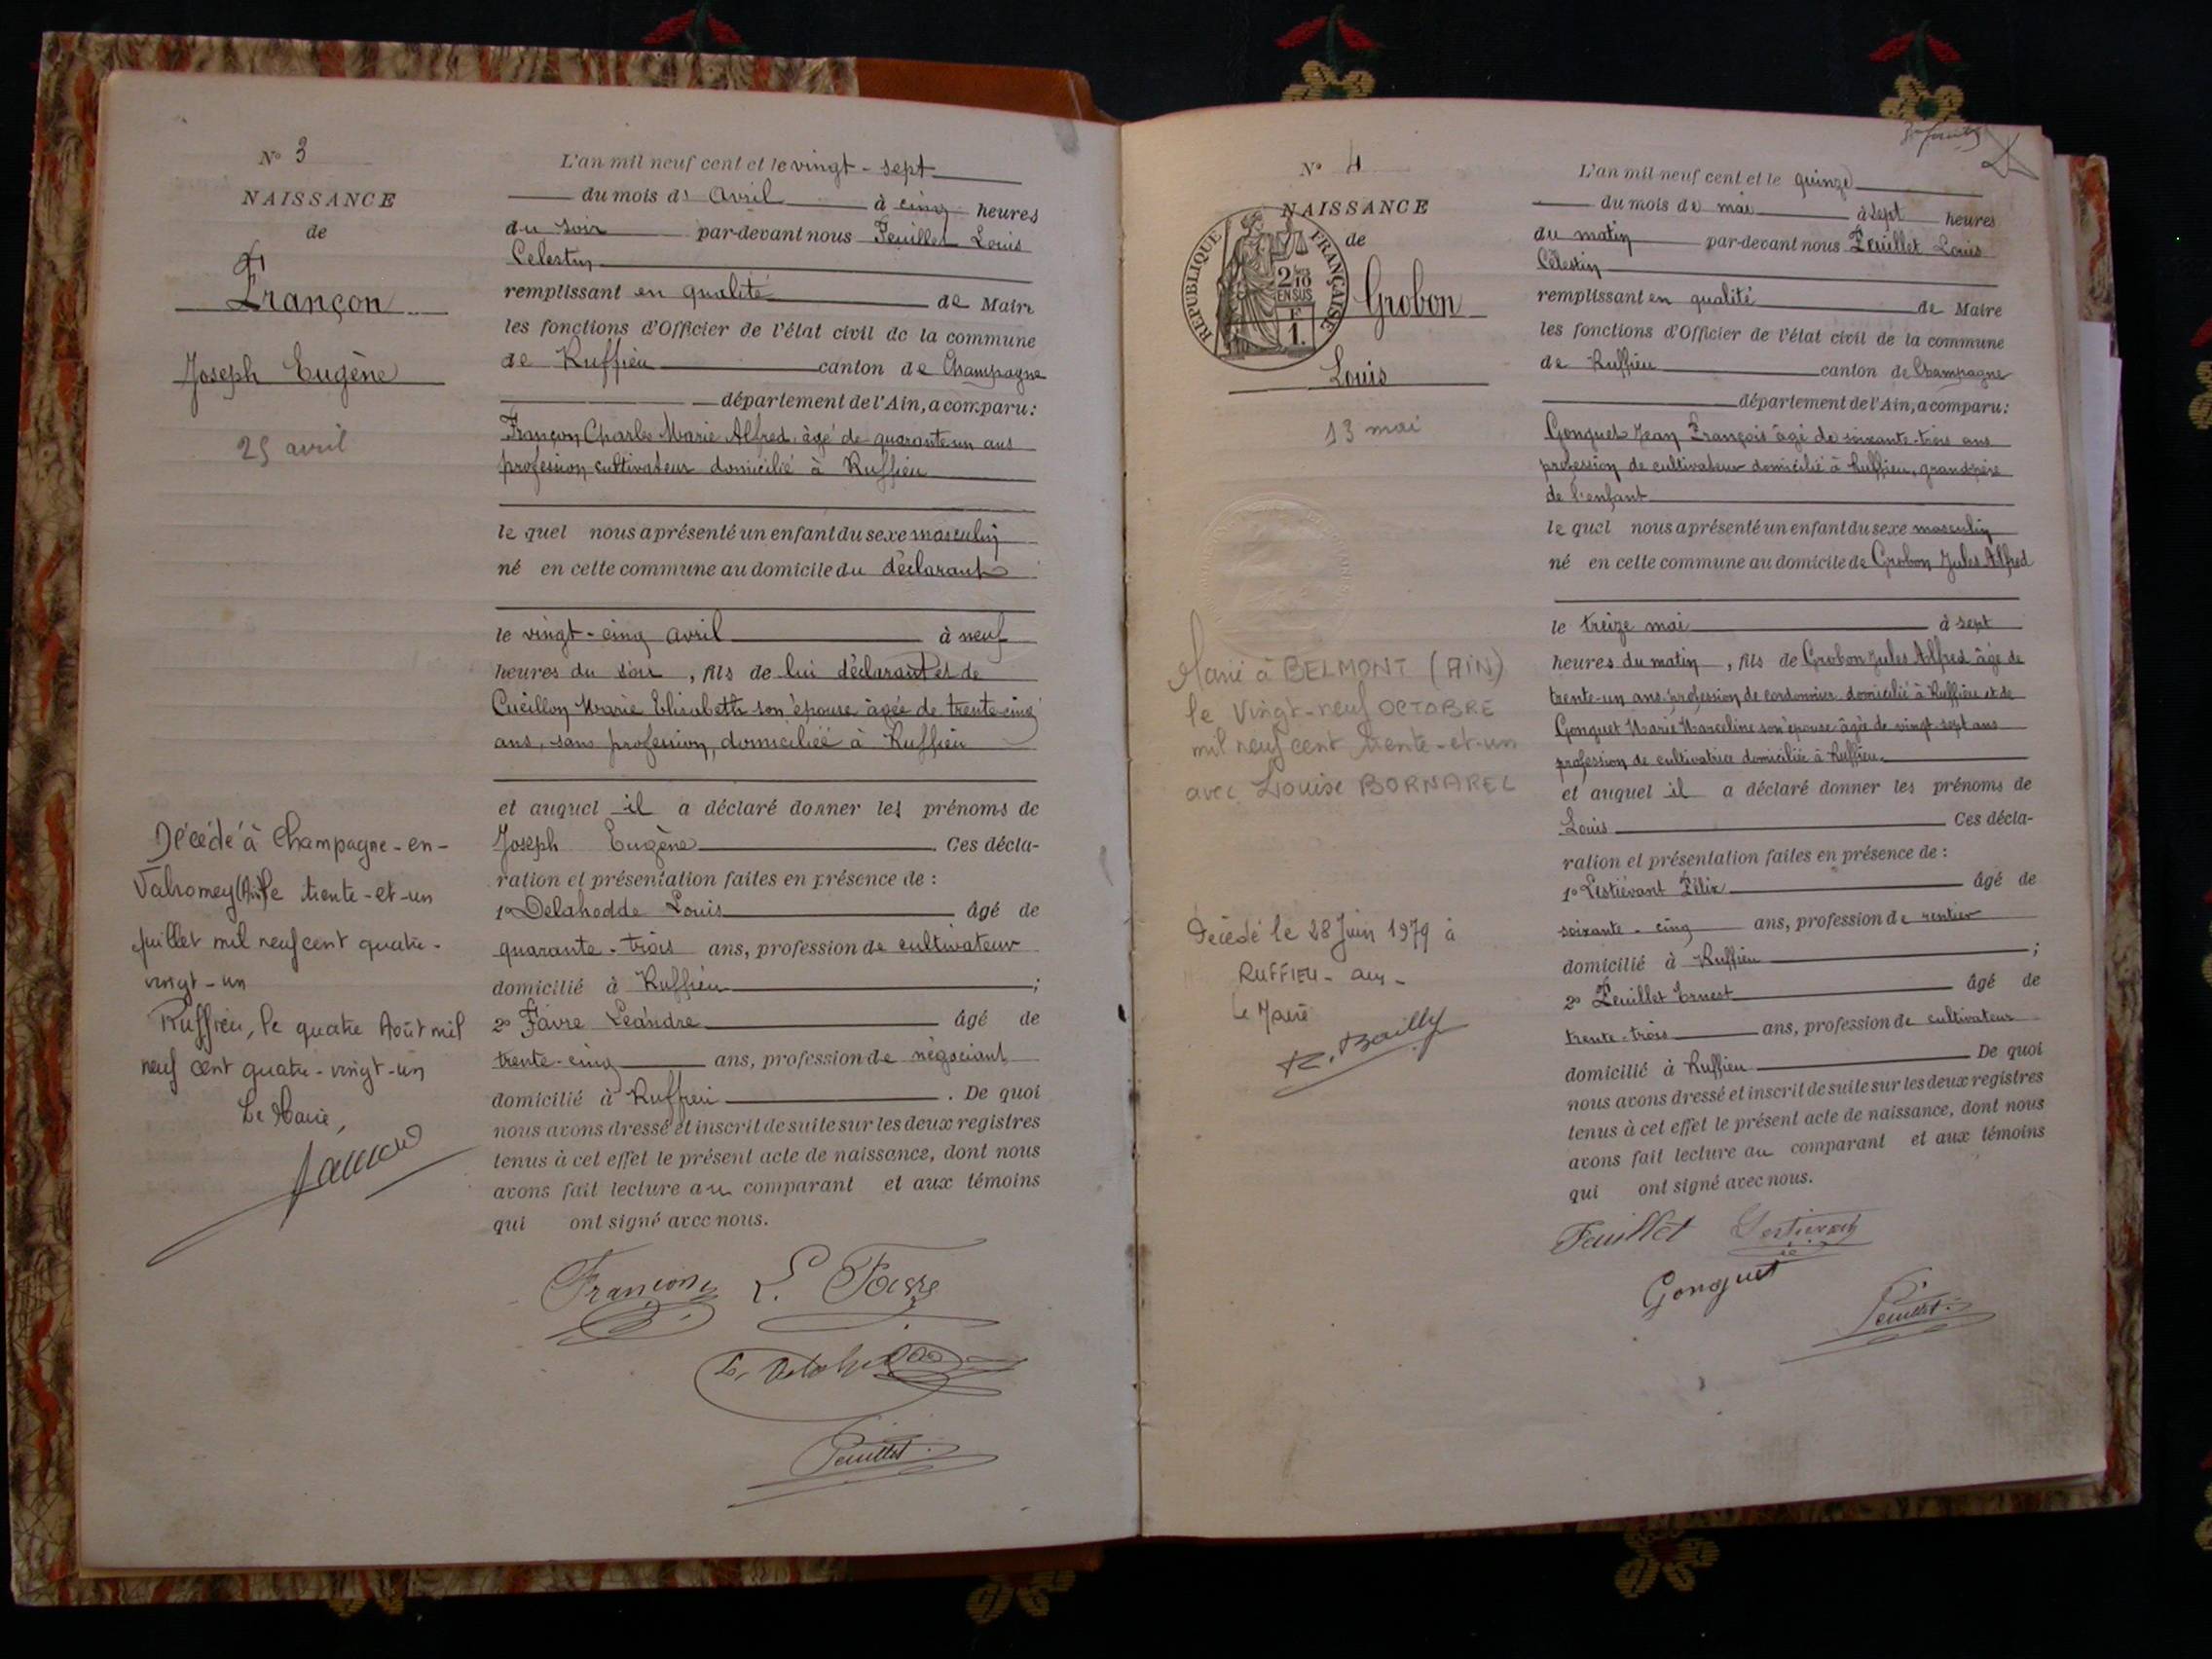 N° 3
NAISSANCE
de
Françon
Joseph Eugène
25 avril
Décédé à Champagne-en-
Valromey (Ain) le trente-et-un
juillet mil neuf cent quatre-
vingt-un
Ruffieu, le quatre Août mil
neuf cent quatre-vingt-un
Le Maire,
L'an mil neuf cent et le vingt-sept
du mois de avril à cinq heures
du soir par-devant nous Feuillet Louis
Celestin
remplissant en qualité de Maire
les fonctions d'Officier de l'état civil de la commune
de Ruffieu canton de Champagne
département de l'Ain, a comparu :
Françon Charles Marie Alfred, âgé de quarante un ans
profession cultivateur domicilié à Ruffieu
le quel nous a présenté un enfant du sexe masculin
né en cette commune au domicile du déclarant
le vingt-cinq avril à neuf
heures du soir, fils de lui déclarant et de
Cueillon Marie Elisabeth son épouse âgée de trente-cinq
ans, sans profession, domiciliée à Ruffieu
et auquel il a déclaré donner les prénoms de
Joseph Eugène. Ces décla-
ration et présentation faites en présence de :
1° Delahodde Louis âgé de
quarante-trois ans, profession de cultivateur
domicilié à Ruffieu ;
2° Favre Léandre âgé de
trente-cinq ans, profession de négociant
domicilié à Ruffieu. De quoi
nous avons dressé et inscrit de suite sur les deux registres
tenus à cet effet le présent acte de naissance, dont nous
avons fait lecture au comparant et aux témoins
qui ont signé avec nous.
Françon L. Favre
Feuillet
N° 4
NAISSANCE
de
Grobon
Louis
13 mai
RÉPUBLIQUE FRANÇAISE
2/10
EN SUS
F
1.
Marié à BELMONT (AIN)
le Vingt-neuf OCTOBRE
mil neuf cent trente-et-un
avec Louise BORNAREL
Décédé le 28 Juin 1979 à
RUFFIEU
Le Maire
R. Bailly
L'an mil neuf cent et le quinze
du mois de mai à sept heures
du matin par-devant nous Feuillet Louis
Célestin
remplissant en qualité de Maire
les fonctions d'Officier de l'état civil de la commune
de Ruffieu canton de Champagne
département de l'Ain, a comparu :
Gonguet Jean François âgé de soixante-trois ans
profession de cultivateur domicilié à Ruffieu, grand père
de l'enfant
le quel nous a présenté un enfant du sexe masculin
né en cette commune au domicile de Grobon Jules Alfred
le treize mai à sept
heures du matin, fils de Grobon Jules Alfred âgé de
trente-un ans profession de cordonnier domicilié à Ruffieu et de
Gonguet Marie Marceline son épouse âgée de vingt-sept ans
profession de cultivatrice domiciliée à Ruffieu
et auquel il a déclaré donner les prénoms de
Louis Ces décla-
ration et présentation faites en présence de :
1° Lestiévant Félix âgé de
soixante-cinq ans, profession de rentier
domicilié à Ruffieu ;
2° Feuillet Ernest âgé de
trente-trois ans, profession de cultivateur
domicilié à Ruffieu De quoi
nous avons dressé et inscrit de suite sur les deux registres
tenus à cet effet le présent acte de naissance, dont nous
avons fait lecture au comparant et aux témoins
qui ont signé avec nous.
Feuillet Lestievant
Gonguet
Feuillet